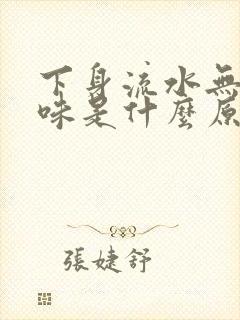 下身流水無
味是什麼原
張婕舒